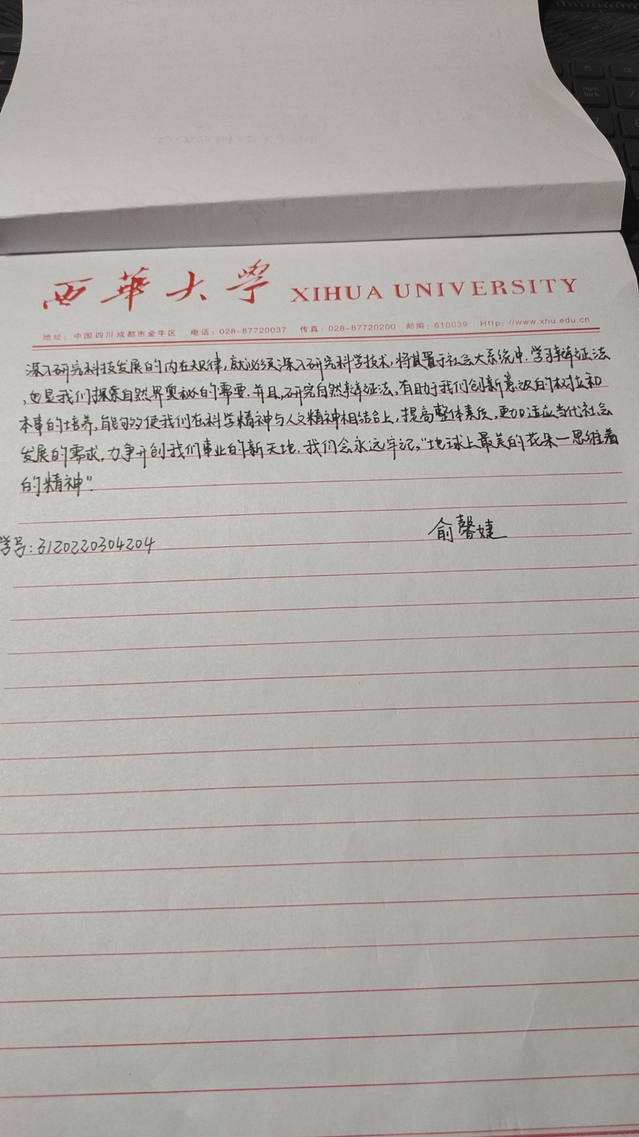 西华大学 XIHUA UNIVERSITY
地址：中国四川成都市金牛区 电话：028-87720037 传真：028-87720200 邮编：610039 Http://www.xhu.edu.cn
深入研究科技发展的内在规律，就必须深入研究科学技术，将其置于社会大系统中。学习辩证法
，也是我们探索自然界奥秘的需要。并且，研究自然辩证法，有助于我们创新意识的树立和
本事的培养，能够使我们在科学精神与人文精神相结合上，提高整体素质，更加适应当代社会
发展的需求，力争开创我们事业的新天地。我们会永远牢记，“地球上最美的花朵一思维着
的精神”。
学号：3120220304204 俞馨婕